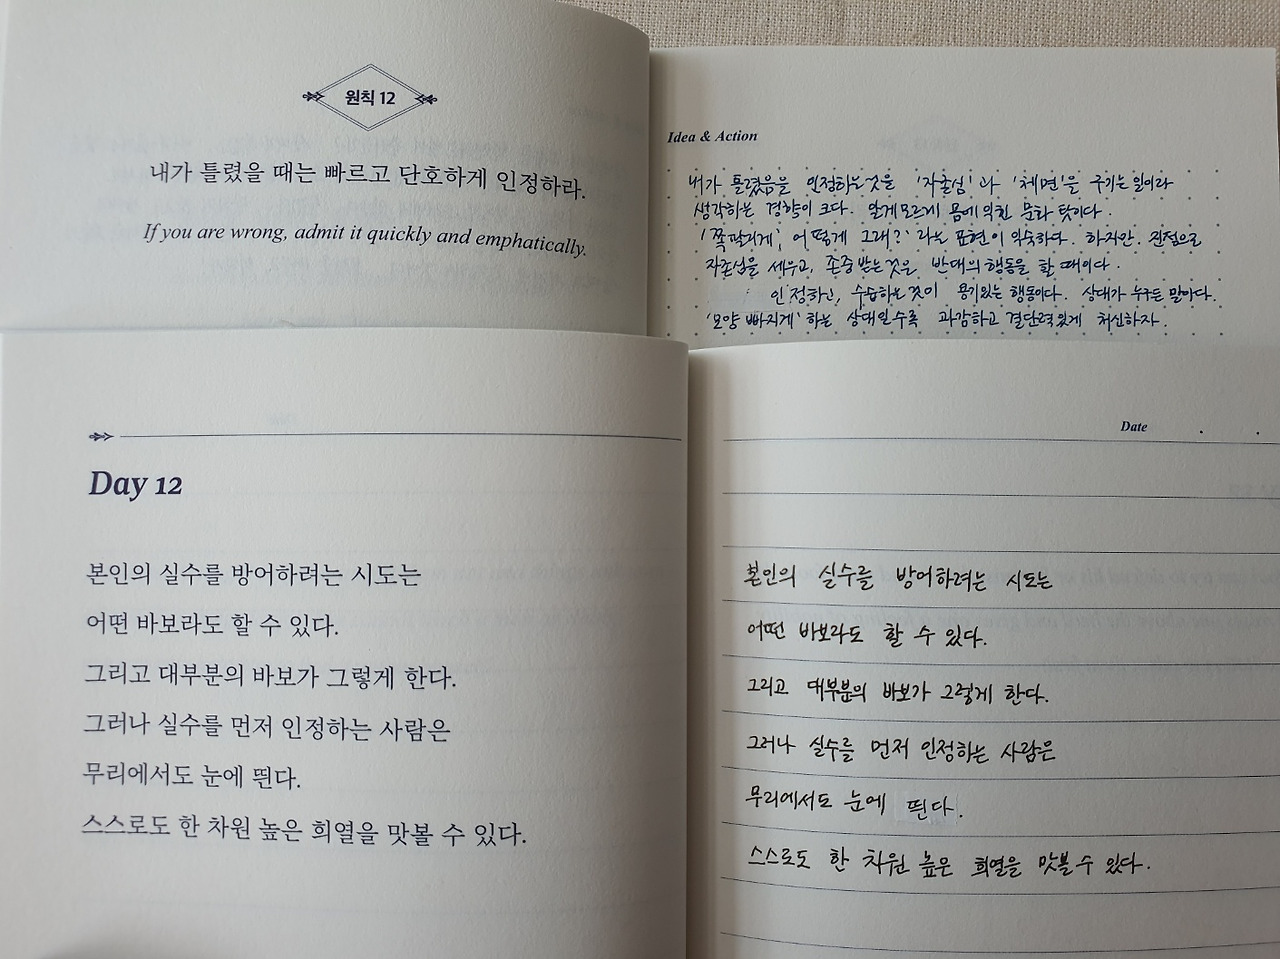 원칙 12
내가 틀렸을 때는 빠르고 단호하게 인정하라.
If you are wrong, admit it quickly and emphatically.
Idea & Action
내가 틀렸음을 인정하는것을 '자존심'과 '체면'을 구기는 일이라
생각하는 경향이 크다. 알게모르게 몸에 익힌 문화 탓이다.
'쪽팔리게, 어떻게 그래?' 라는 표현이 익숙하다. 하지만. 진정으로
자존심을 세우고, 존중받는것은 반대의 행동을 할 때이다.
인정하고, 수습하는것이 용기있는 행동이다. 상대가 누구든 말이다.
'모양 빠지게' 하는 상대일수록 과감하고 결단력있게 처신하자.
Day 12
본인의 실수를 방어하려는 시도는
어떤 바보라도 할 수 있다.
그리고 대부분의 바보가 그렇게 한다.
그러나 실수를 먼저 인정하는 사람은
무리에서도 눈에 띈다.
스스로도 한 차원 높은 희열을 맛볼 수 있다.
Date . .
본인의 실수를 방어하려는 시도는
어떤 바보라도 할 수 있다.
그리고 대부분의 바보가 그렇게 한다.
그러나 실수를 먼저 인정하는 사람은
무리에서도 눈에 띈다.
스스로도 한 차원 높은 희열을 맛볼 수 있다.